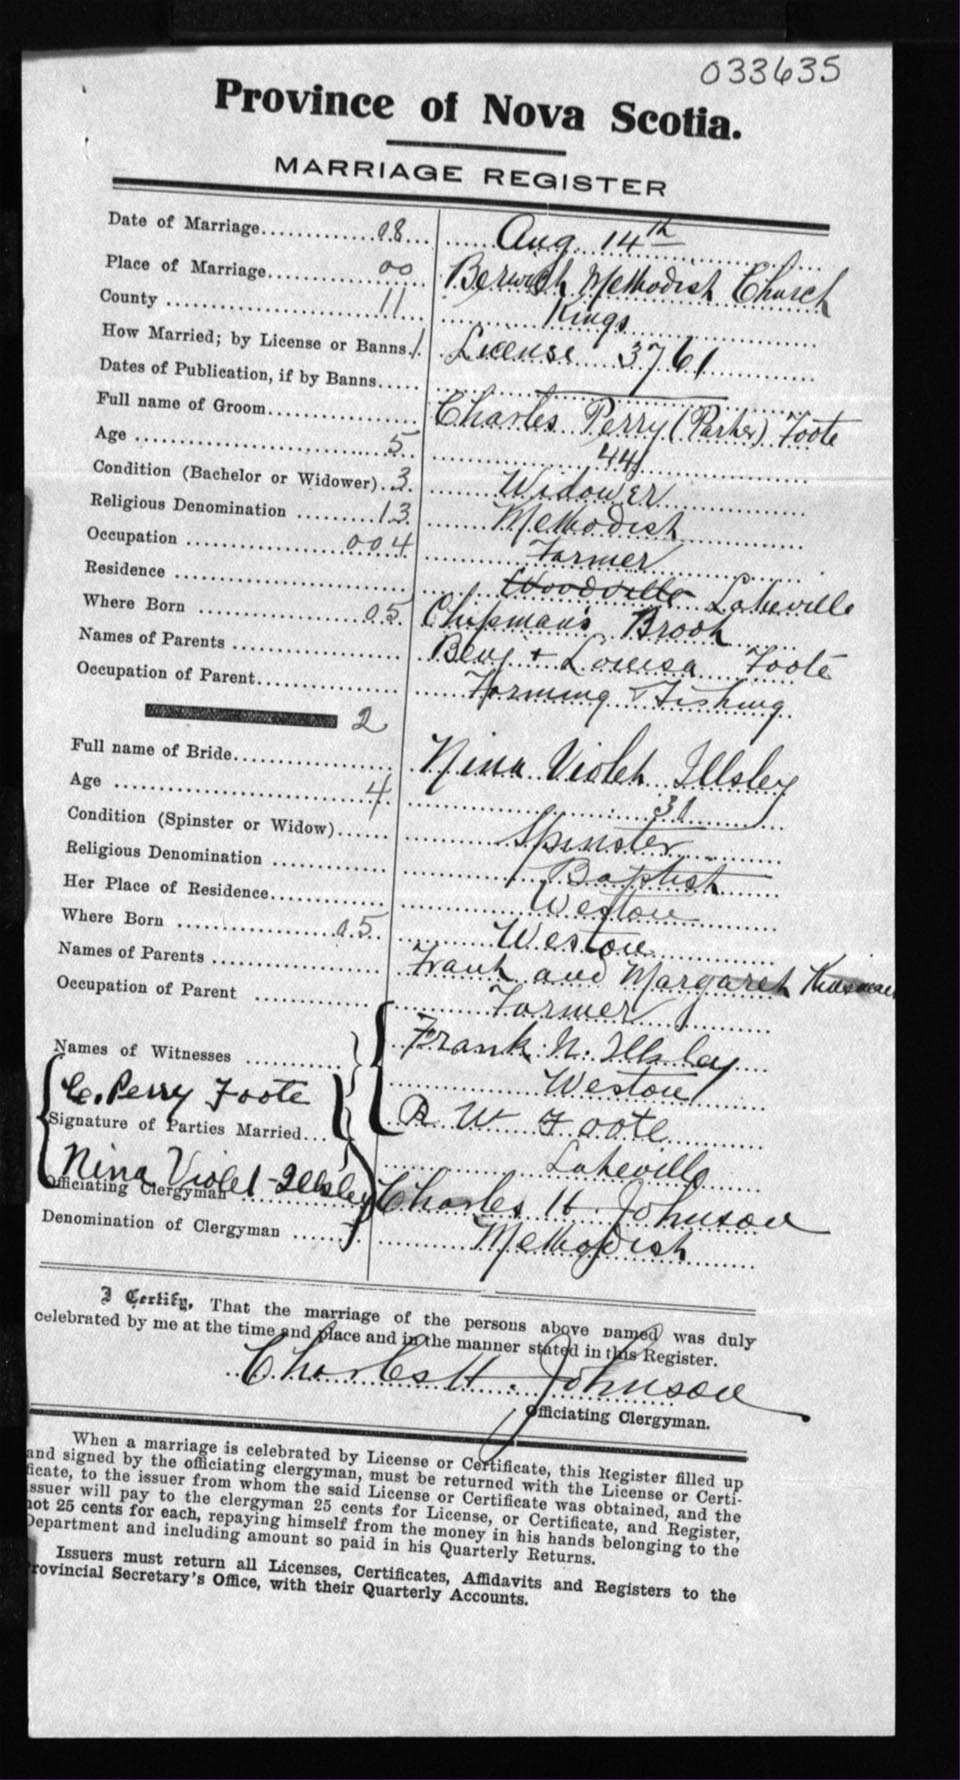 033635
Province of Nova Scotia.
MARRIAGE REGISTER
Date of Marriage 08 Aug 14th
Place of Marriage 00 Berwick Methodist Church
County 11 Kings
How Married; by License or Banns 1. License 3761
Dates of Publication, if by Banns
Full name of Groom Charles Perry (Parker) Foote
Age 5 44
Condition (Bachelor or Widower) 3 Widower
Religious Denomination 13 Methodist
Occupation 004 Farmer
Residence Woodville Lakeville
Where Born 05 Chipman's Brook
Names of Parents Benj + Louisa Foote
Occupation of Parent Farming & Fishing
2
Full name of Bride Nina Violet Illsley
Age 4 31
Condition (Spinster or Widow) Spinster
Religious Denomination Baptist
Her Place of Residence Weston
Where Born 05 Weston
Names of Parents Frank and Margaret
Occupation of Parent Farmer
Names of Witnesses Frank N. Illsley
Weston
C. Perry Foote R W Foote
Signature of Parties Married
Lakeville
Nina Violet Illsley
Officiating Clergyman Charles H. Johnson
Denomination of Clergyman Methodist
I Certify, That the marriage of the persons above named was duly
celebrated by me at the time and place and in the manner stated in this Register.
Charles H. Johnson
Officiating Clergyman.
When a marriage is celebrated by License or Certificate, this Register filled up
and signed by the officiating clergyman, must be returned with the License or Certi-
ficate, to the issuer from whom the said License or Certificate was obtained, and the
issuer will pay to the clergyman 25 cents for License, or Certificate, and Register,
not 25 cents for each, repaying himself from the money in his hands belonging to the
Department and including amount so paid in his Quarterly Returns.
Issuers must return all Licenses, Certificates, Affidavits and Registers to the
Provincial Secretary's Office, with their Quarterly Accounts.